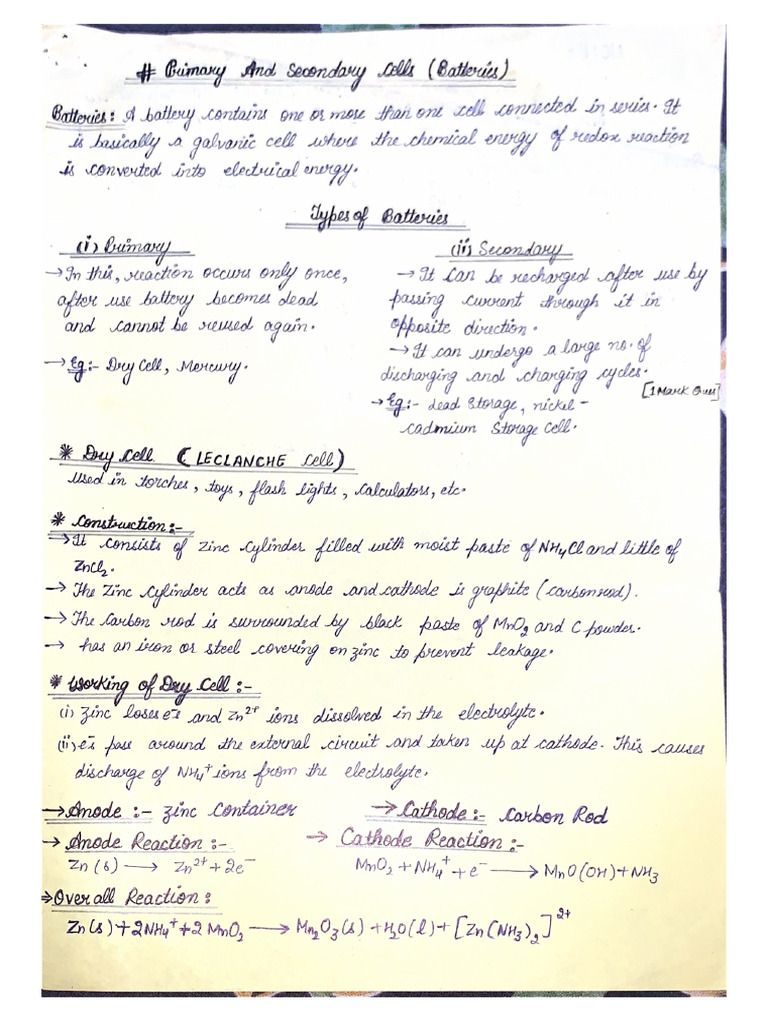 # Primary And Secondary Cells (Batteries)
Batteries: A battery contains one or more than one cell connected in series. It
is basically a galvanic cell where the chemical energy of redox reaction
is converted into electrical energy.
Types of Batteries
(i) Primary
→ In this, reaction occurs only once,
after use battery becomes dead
and cannot be reused again.
→ Eg:- Dry Cell, Mercury.
(ii) Secondary
→ It can be recharged after use by
passing current through it in
opposite direction.
→ It can undergo a large no. of
discharging and charging cycles.
[1 Mark Ques]
→ Eg:- Lead Storage, nickel-
cadmium storage cell.
* Dry Cell (LECLANCHE Cell)
Used in torches, toys, flash lights, calculators, etc.
* Construction:-
→ It consists of zinc cylinder filled with moist paste of NH₄Cl and little of
ZnCl₂.
→ The Zinc cylinder acts as anode and cathode is graphite (carbon rod).
→ The carbon rod is surrounded by black paste of MnO₂ and C powder.
→ has an iron or steel covering on zinc to prevent leakage.
* Working of Dry Cell:-
(i) Zinc loses e⁻s and Zn²⁺ ions dissolved in the electrolyte.
(ii) e⁻s pass around the external circuit and taken up at cathode. This causes
discharge of NH₄⁺ ions from the electrolyte.
→ Anode :- Zinc Container
→ Cathode:- Carbon Rod
→ Anode Reaction:-
Zn(s) → Zn²⁺ + 2e⁻
→ Cathode Reaction:-
MnO₂ + NH₄⁺ + e⁻ → MnO(OH) + NH₃
⇒ Overall Reaction:
Zn(s) + 2NH₄⁺ + 2MnO₂ → Mn₂O₃(s) + H₂O(l) + [Zn(NH₃)₂]²⁺